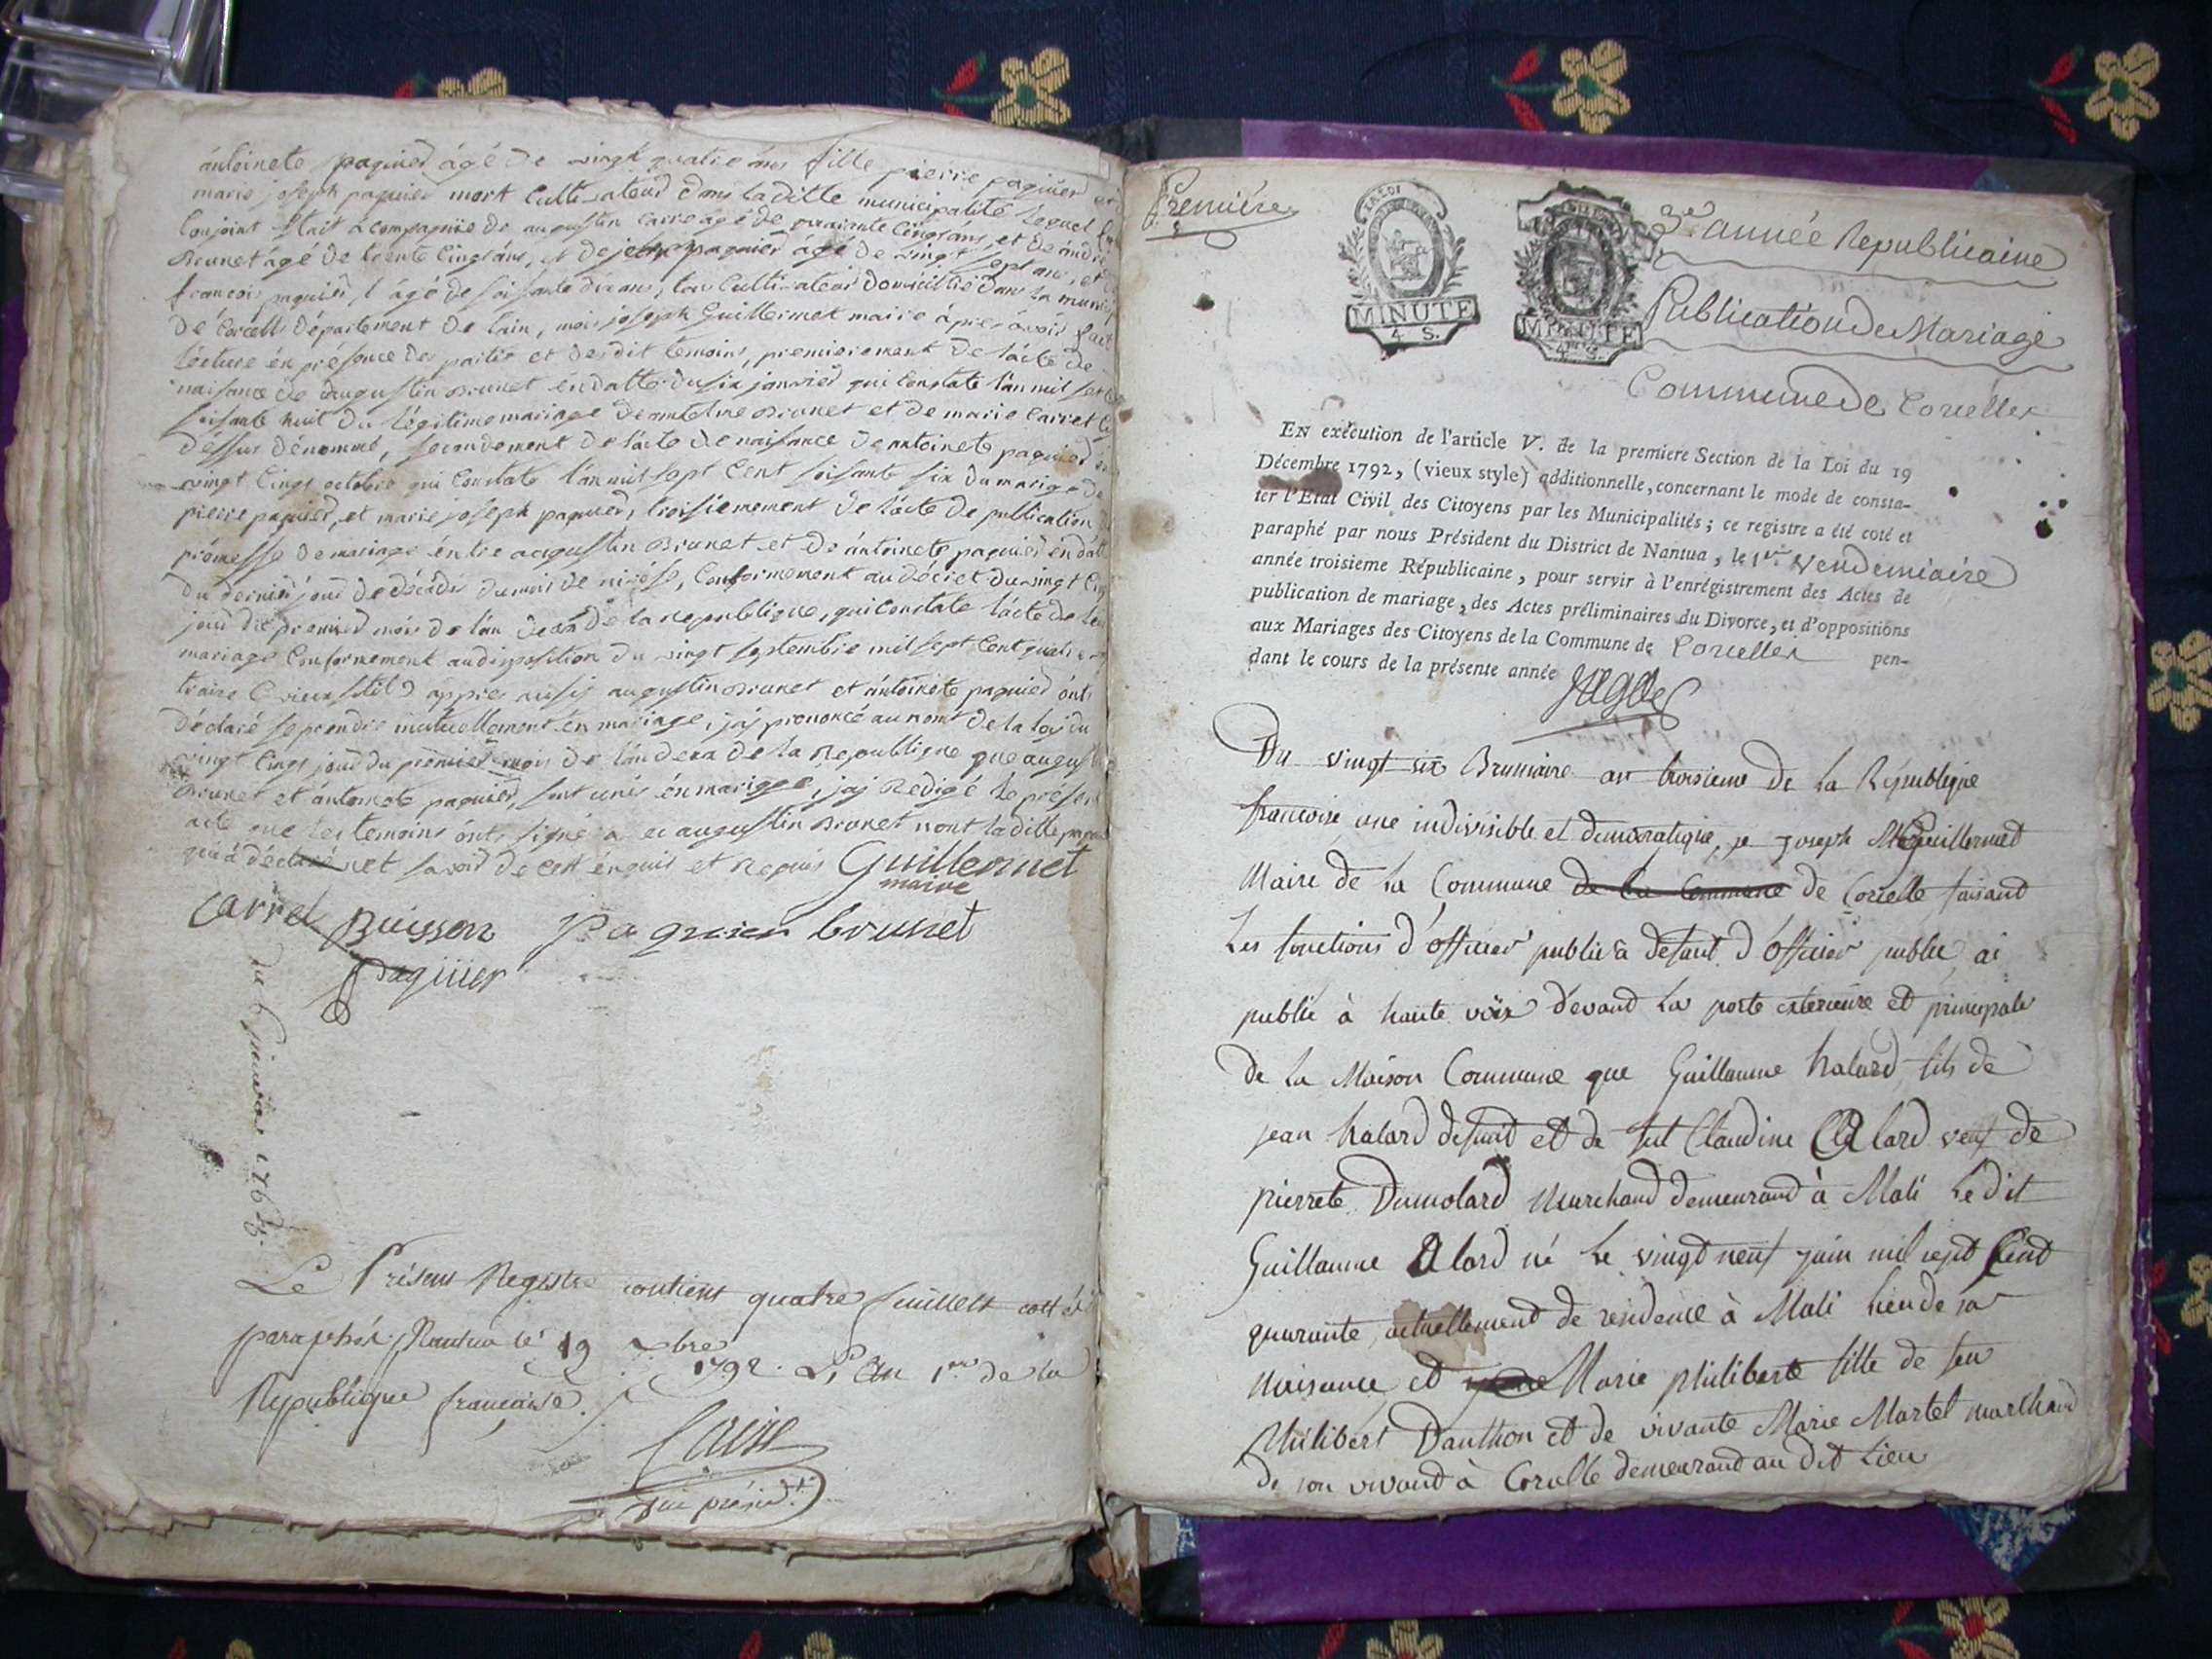 antoinete paquier âgé de vingt quatre ans fille pierre paquier et
marie joseph paquier mort Cultivateur dans la ditte municipalité lequel
Conjoint étoit acompagnié de augustin Carre agé de quarante Cinq ans, et de andré
Brunet agé de trente Cinq ans, et de paquier âgé de vingt sept ans, et
francois paquier l'âgé de soisante dix ans, tous Cultivateurs domicillié dans la munici
de Corcelle département de lain, moi joseph Guillermet maire âpres avoir fait
lécture én présence des parties et desdit temoins, premierement de lácte de
naisance de augustin Brunet én datte du six janvier qui Constate l'an mil sept
soisante huit du légitime mariage de antelme Brunet et de marie Carret
déssus dénommé, secondement de lácte de naissance de antoinete paquier
vingt Cinq octobre qui Constate l'an mil sept Cent soisante six du mariage de
pierre paquier, et marie joseph paquier, troisiemement de lácte de publication
prómesse de mariage éntre augustin Brunet et de ántoinete paquier én datte
du dernier jour de décade du mois de nivóse, Conformement au décret du vingt Cinq
jour du premier mois de l'an deux de la republique, qui Constate lácte de
mariage Conformement au disposition du vingt septembre mil sept Cent quatre
vieux stil appres aussij augustin Brunet et ántoinete paquier ónt
déclaré se prendre mutuellement én mariage, jaj prononcé au nomt de la loy du
vingt Cinq jour du premier mois de l'an deux de la Republique que august
Brunet et ántoinete paquier, sont unis én mariage, jaj Redigé le présent
acte que les temoins ónt signé augustin Brunet nont la ditte paquier
qui á déclaré net savoir de ce énquis et Requis Guillermet
maire
Carrel Buisson Paquier brunet
Paquier
du 6 janvier 1768.
Le Présent Registre contient quatre feuillets cotté et
paraphés Nantua le 19 xbre
1792. L'An 1er de la
République française.
vice présidt
Premiére
MINUTE
4 S.
MINUTE
3e année Republicaine
Publication de Mariage
Commune de Corcelles
EN exécution de l'article V. de la premiere Section de la Loi du 19
Décembre 1792, (vieux style) additionnelle, concernant le mode de consta-
ter l'Etat Civil des Citoyens par les Municipalités; ce registre a été coté et
paraphé par nous Président du District de Nantua, le 1er Vendemiaire
année troisieme Républicaine, pour servir à l'enrégistrement des Actes de
publication de mariage, des Actes préliminaires du Divorce, et d'oppositions
aux Mariages des Citoyens de la Commune de Corcelles pen-
dant le cours de la présente année
Du vingt six Brumaire an troisieme de la République
francoise une indivisible et democratique, je Joseph Mie Guillermet
Maire de la Commune de la Commune de Corcelle faisant
les fonctions d'officier public à defaut d'officier public ai
publié à haute voix devand la porte exterieure et principale
de la Maison Commune que Guillaume halard fils de
jean halard defunt et de fut Claudine Alard veuf de
pierrete Dumolard Marchand demeurand à Mali le dit
Guillaume Alard né le vingt neuf juin mil sept Cent
quarante, actuellement de residence à Mali lieu de sa
Naisance, et Marie philiberte fille de feu
Philibert Danthon et de vivante Marie Martel marchand
de son vivand à Corcelle demeurand au dit lieu